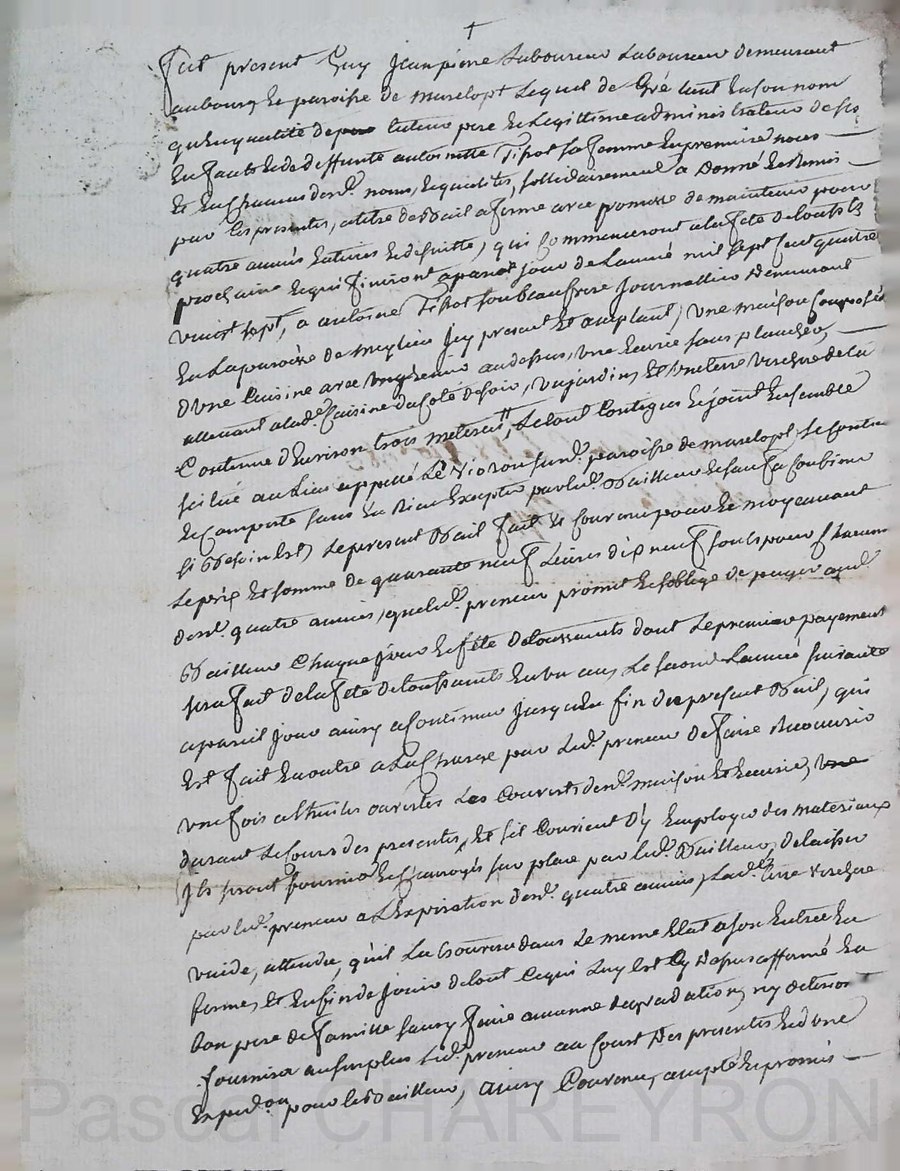 +
fut present Guy Jean pierre Laboureur Laboureur demeurant
au bourg et paroisse de marclopt Lequel de Gré tant En son nom
qu'En qualité de tuteur pere et Legittime administrateur de ses
Enfants et de deffunte antoinette Tipot sa femme En premiere noces
Et En chacuns desd. noms, Et qualités, sollidairement a Donné Et Remis
par Ces presentes, a titre de Bail a ferme avec promesse de maintenir pour
quatre années Entieres Et de suitte, qui Commenceront a la fete de touss ts
prochaine Et qui finiront a pareil jour de L'année mil sept Cent quatre
vingt sept, a antoine Tipot son beaufrere Journallier Demeurant
En La paroisse de meylieu Icy present Et acceptant, une maison Composée
D'une Cuisine avec un grenier au dessus, une Ecurie sans plancher,
attenant a lad. Cuisine du Coté de soir, un jardin, Et une terre verchere de la
Contenue d'Environ trois meterées, Le tout Contigus Et joint Ensemble
scitué au Lieu appellé Le Vioron susd. paroisse de marclopt, Se Contient
Et Comporte sans En Rien Excepter par led. Bailleur Et sans sa Confiner
si Besoin Est, Le present Bail fait Et Convenu pour Et moyennant
Le prix Et somme de quarante neuf Livres dix neuf sous pour Chacune
desd. quatre années, que led. preneur promet Et s'oblige de payer aud.
Bailleur Chaque jour Et fete de toussaints dont Le premier payement
sera fait de la fete de toussaints En un an, Le second L'année suivante
a pareil jour ainsy a Continuer jusqu'a La fin du present Bail, qui
Est fait En outre a La Charge par Led. preneur de faire Recouvrir
une fois a thuiles ouvertes Les Couverts desd. maison Et Ecurie,
durant Le Cours des presentes, Et s'il Convient D'y Employer des materiaux
Ils seront fournis Et Charroyés sur place par led. Bailleur, de laisser
par led. preneur a L'Expiration desd. quatre années, Lad. terre verchere
vuide, attendu, qu'il La trouvera dans Le meme Etat a son Entrée En
ferme, Et Enfin de Jouir de tout Ce qui Luy Est Cy Dessus affermé En
bon pere de famille sans y faire aucunne degradation, ny deterior
fournira au surplus Led. preneur au Court Des presentes Et d'une
Expedon pour led. Bailleur, ainsy Convenu, accepté Et promis
Pascal CHAREYRON